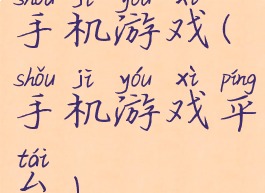 shǒu jī yóu xì
手机游戏(
shǒu jī yóu xì píng
手机游戏平
tái
台)